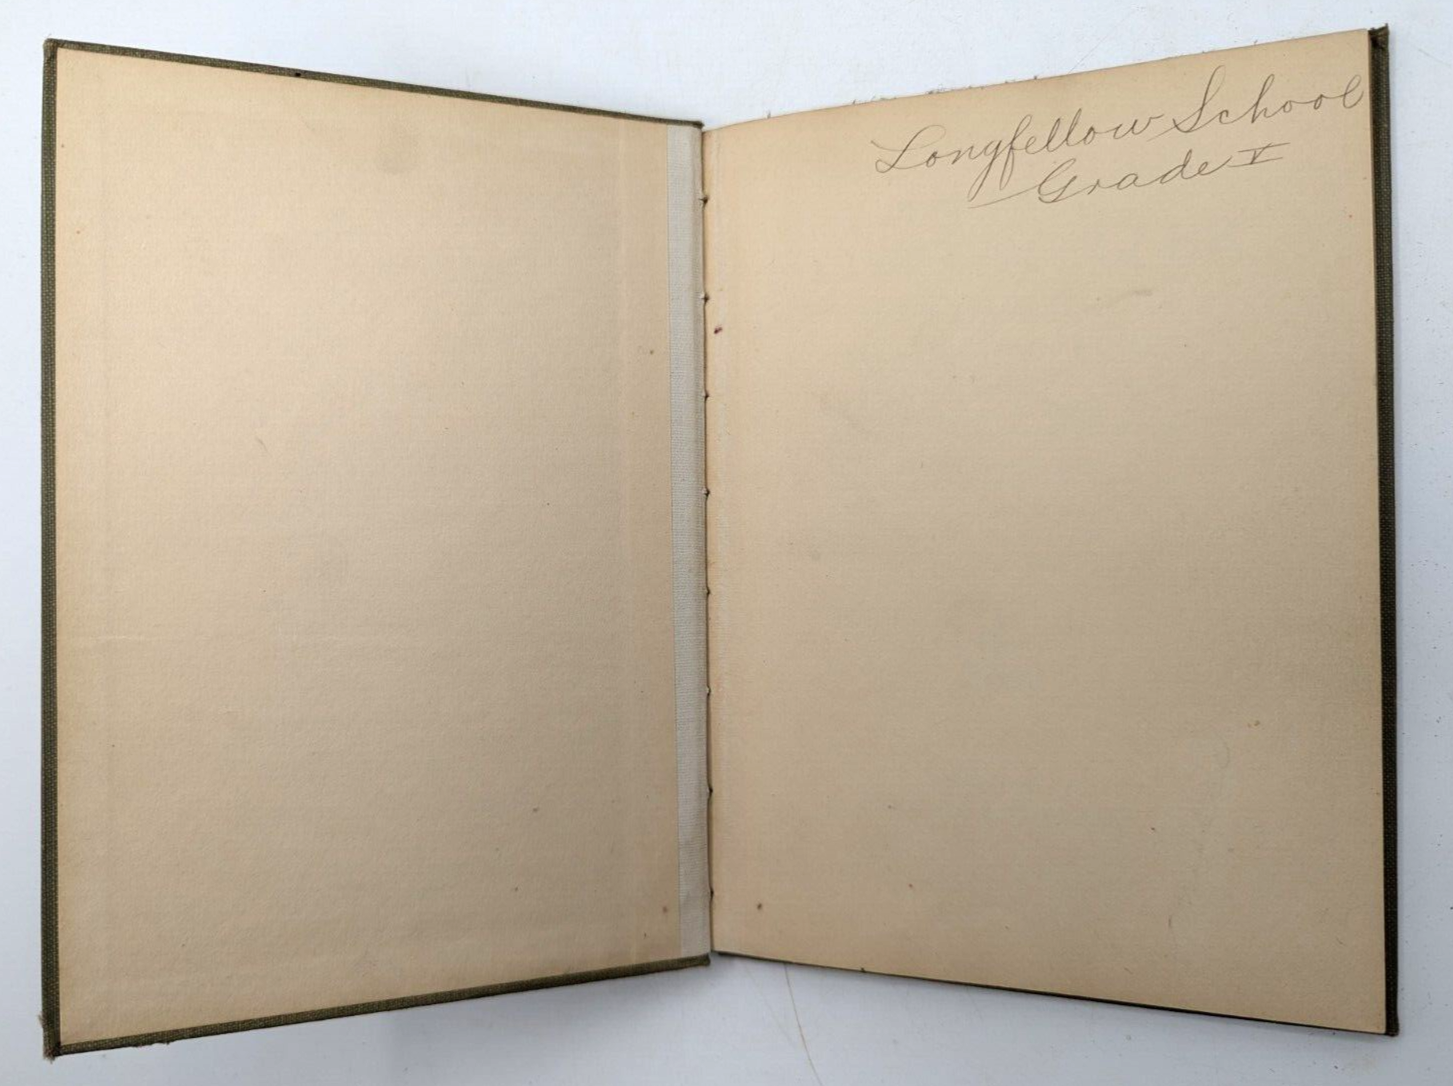 Longfellow School
Grade V